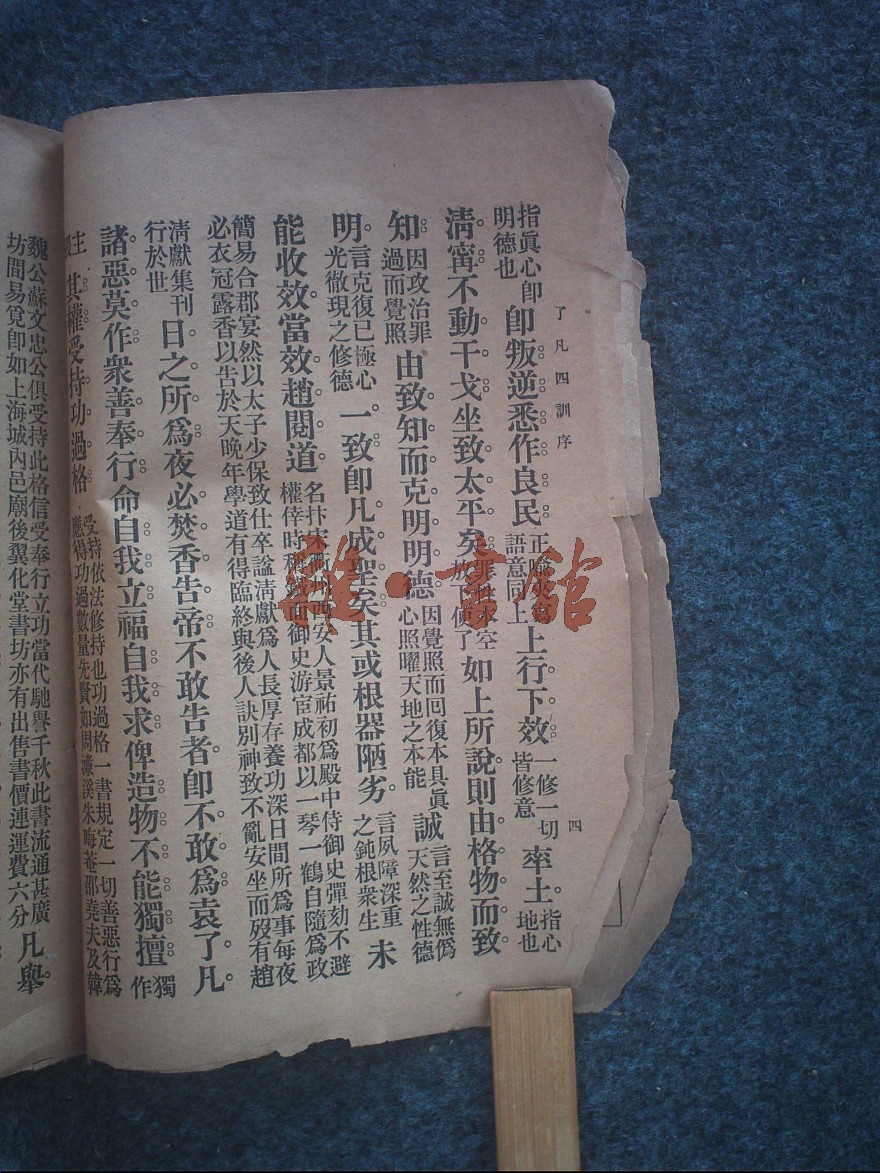 了凡四訓序 四
指眞心卽明德也卽叛逆悉作良民語意同上上行下效一修一切皆修意率土指心地也
淸甯不動干戈坐致太平矣罪性本空放下便了如上所說則由格物而致
知因攻治罪過而覺照由致知而克明明德因覺照而回復本具眞心照曜天地之本能誠言至誠無僞天然之性德
明言克復已極心光徹現之修德一致卽凡成聖矣其或根器陋劣言夙障深重之鈍根衆生未
能收效當效趙閱道名抃宋衢州西安人景祐初爲殿中侍御史彈劾不避權倖時稱鐵面御史游宦成都以一琴一鶴自隨爲政
簡易合郡宴然以太子少保致仕卒諡淸獻爲人長厚存養功深日間所爲事每夜
必衣冠露香以告於天晚年學道有得臨終與後人訣別神致不亂安坐而歿有趙
淸獻集刊行於世日之所爲夜必焚香告帝不敢告者卽不敢爲袁了凡
諸惡莫作衆善奉行命自我立福自我求俾造物不能獨擅獨作
主其權受持功過格受持依法修持也功過格一書規定一切善惡行爲應得功過數量先賢如周濂溪朱晦菴邵堯夫及韓
魏公蘇文忠公俱受持此格信受奉行立功當代馳譽千秋此書流通甚廣坊間易覓卽如上海城內邑廟後翼化堂書坊亦有出售書價連運費六分凡舉
雅·書館